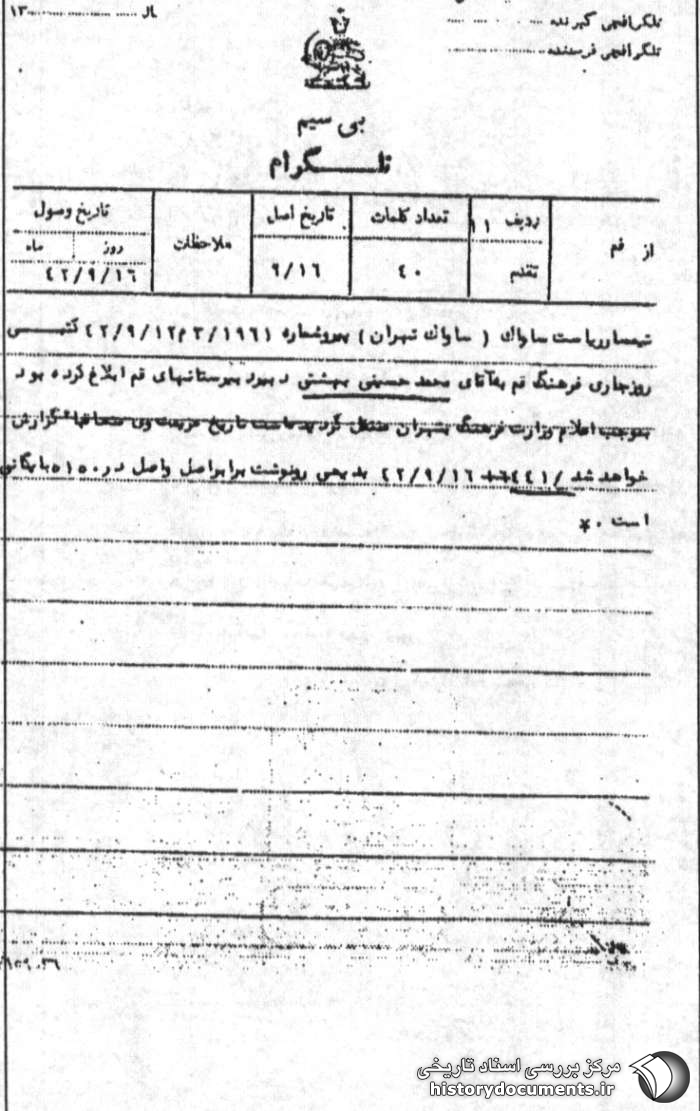 تلگرافچی گیرنده
تلگرافچی فرستنده
ال ۱۳۰۰
بی سیم
تلـــگرام
از قم
ردیف ۱۱
تقدیم
تعداد کلمات
۴۰
تاریخ اصل
۹/۱۶
ملاحظات
تاریخ وصول
روز ماه
۴۲/۹/۱۶
تیمسار ریاست ساواك ( ساواك تهران ) پیرو شماره ۳/۱۹۶۱م ۴۲/۹/۱۲
روزجاری فرهنگ قم به آقای محمد حسینی بهشتی دبیر دبیرستانهای قم ابلاغ کرده بود
بموجب اعلام وزارت فرهنگ بتهران منتقل گردیده است تاریخ عزیمت وی متعاقبا" گزارش
خواهد شد /۴۴۱ ۴۲/۹/۱۶ بدیعی رونوشت برابر اصل واصل در ۵۱۵۰ بایگانی
است . *
مرکز بررسی اسناد تاریخی
historydocuments.ir